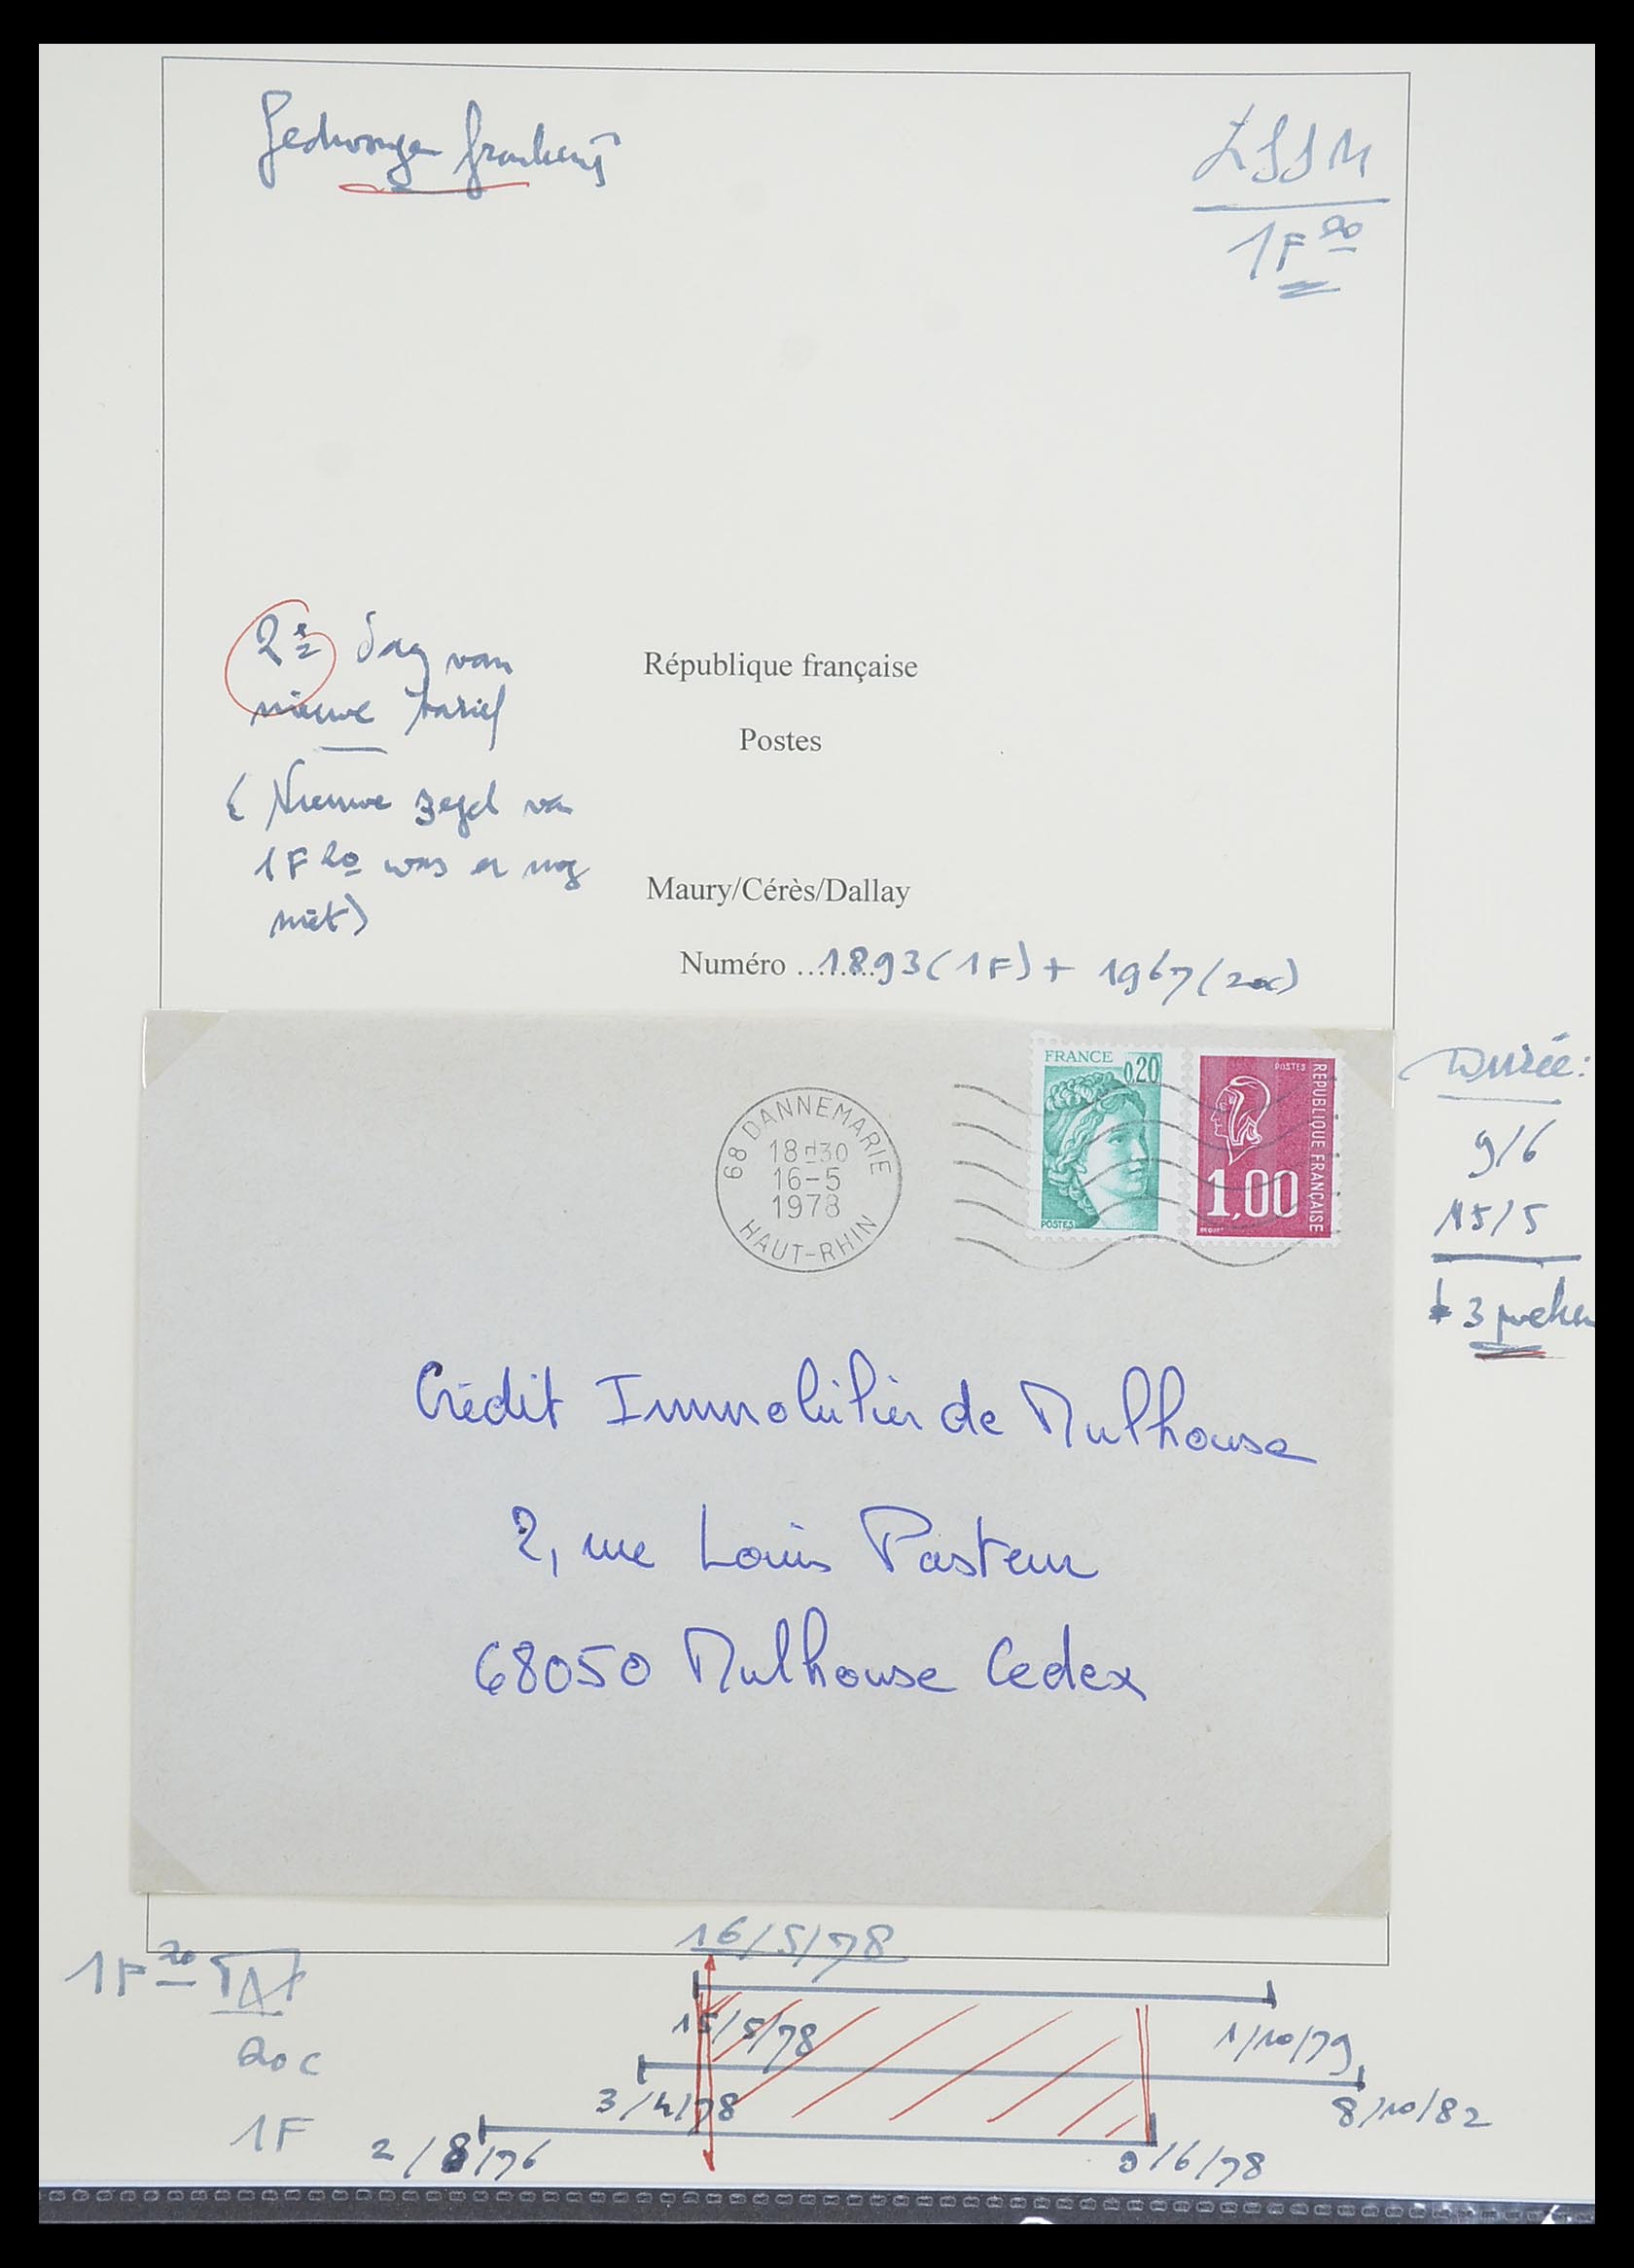 Gedwongen frankering
LSSM
1F 20
2e dag van
nieuwe tarief
(Nieuwe zegel van
1F 20 was er nog
niet)
République française
Postes
Maury/Cérès/Dallay
Numéro ........1893 (1F) + 1967 (20c)
FRANCE
0,20
POSTES
POSTES
REPUBLIQUE FRANÇAISE
1,00
68 DANNEMARIE
18H30
16-5
1978
HAUT-RHIN
Durée:
9/6
15/5
3 weken
Crédit Immobilier de Mulhouse
2, rue Louis Pasteur
68050 Mulhouse Cedex
16/5/78
1F 20 TAR
15/5/78
1/10/79
20c
3/4/78
8/10/82
1F
2/8/76
9/6/78